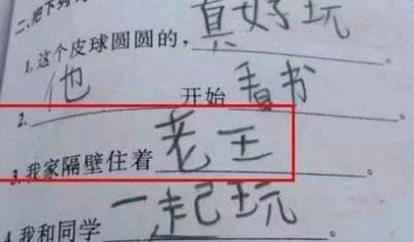 二.把下列
1.这个皮球圆圆的，真好玩。
2.他开始看书。
3.我家隔壁住着老王。
4.我和同学一起玩。